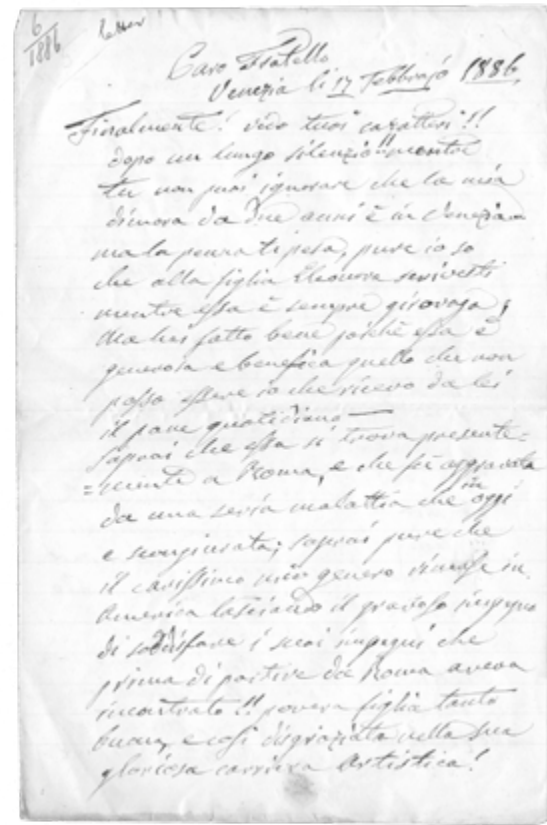 6
1886
letter
Caro Fratello
Venezia li 17 Febbrajo 1886
Finalmente! vedo tuoi caratteri!!
dopo un lungo silenzio!! mentre
tu non puoi ignorare che la mia
dimora da due anni è in Venezia
ma la penna ti pesa, pure io so
che alla figlia Eleonora scrivesti
mentre essa è sempre girovaga,
Ma hai fatto bene poichè essa è
generosa e benefica quello che non
posso essere io che ricevo da lei
il pane quotidiano —
saprai che essa si trova presente=
=mente a Roma, e che fù aggravata
da una seria malattia che in oggi
e scongiurata; saprai pure che
il carissimo mio genero rimase in
America lasciando il gravoso impegno
di soddisfare i suoi impegni che
prima di partire da Roma aveva
incontrato!! povera figlia tanto
buona, e così disgraziata nella sua
gloriosa carriera artistica!